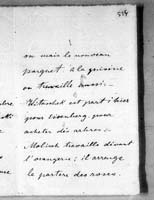 514
on mais le nouveau
parquet à la cuisine
on travaille aussi.
Witaschek est parti hier
pour Eisenberg pour
acheter des arbres.
Motink travaille devant
l'orangerie; il arrange
le partere des roses.